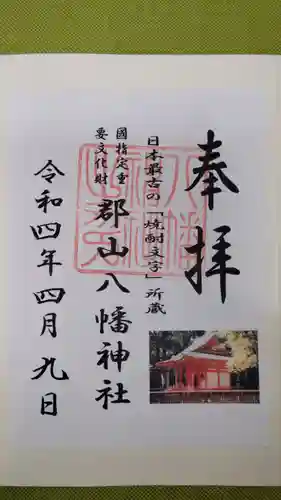 奉拝
日本最古の「焼酎文字」所蔵
國指定重
要文化財
郡山八幡神社
令和四年四月九日